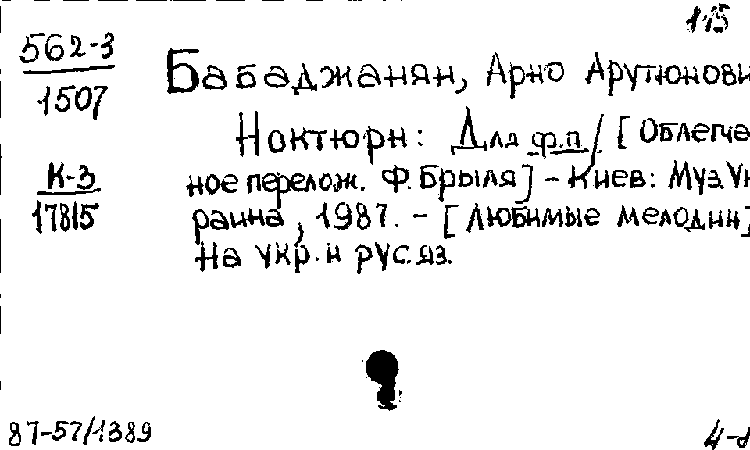 115
562-3
1507
Бабаджанян, Арно Арутюнови
Ноктюрн: Для ф.п./ [Облегче
К-3
17815
ное перелож. Ф. Брыля] - Киев: Муз. Ук
раина, 1987. - [Любимые мелодии]
На укр. и рус. яз.
87-57/1389